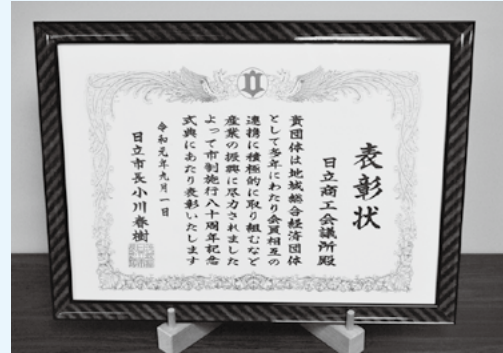 表彰状
日立商工会議所殿
貴団体は地域総合経済団体
として多年にわたり会員相互の
連携に積極的に取り組むなど
産業の振興に尽力されました
よって市制施行八十周年記念
式典にあたり表彰いたします
令和元年九月一日
日立市長小川春樹